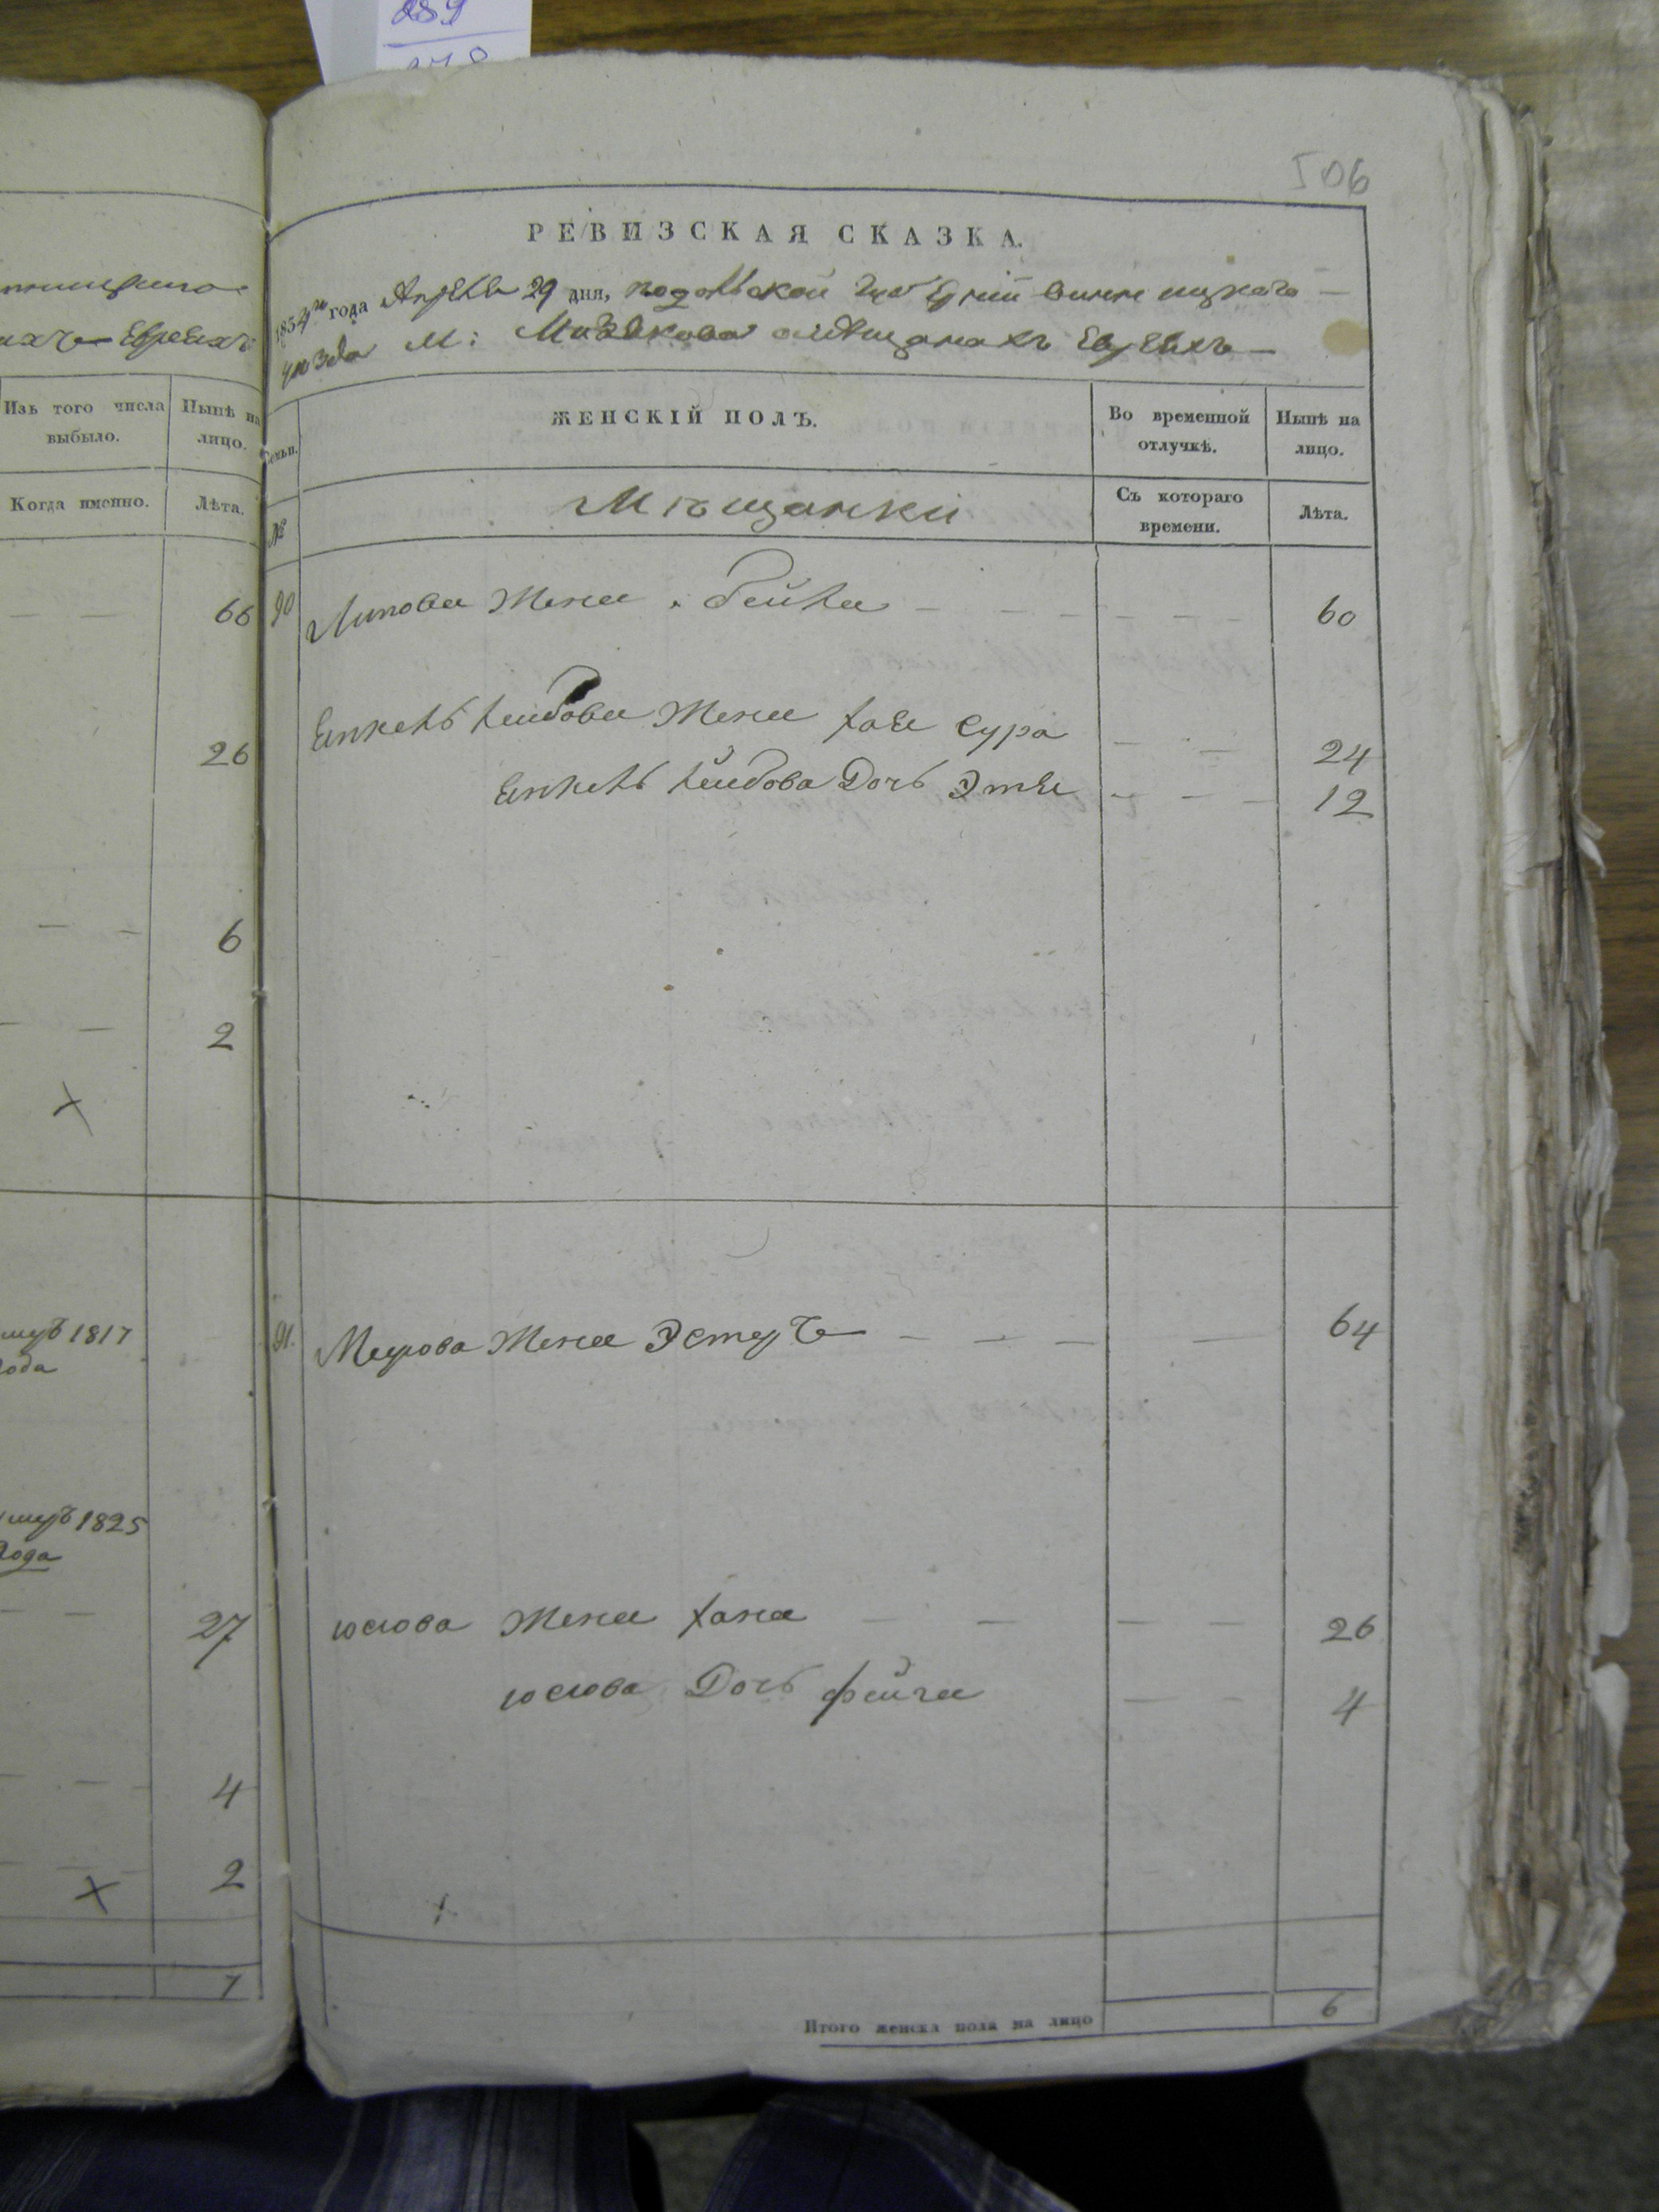 289
506
нницкаго
ихъ Евреихъ
Изъ того числа выбыло.
Нынѣ на лицо.
Когда именно.
Лѣта.
66
26
6
2
умеръ 1817
года
умеръ 1825
года
27
4
2
7
РЕВИЗСКАЯ СКАЗКА.
года Апреля 29 дня, Подольской Губерніи Винницкаго
уезда М: Мизякова о мѣщанахъ Евреяхъ
Семьи.
ЖЕНСКІЙ ПОЛЪ.
Во временной отлучкѣ.
Нынѣ на лицо.
№
Мѣщанки
Съ котораго времени.
Лѣта.
90 Липова Жена Бейла 60
Янкель Лейбова Жена Хая Сура 24
Янкель Лейбова Дочь Этя 12
91. Меерова Жена Эстеръ 64
Юсіова Жена Хана 26
Юсіова Дочь Фейга 4
Итого женска пола на лицо 6